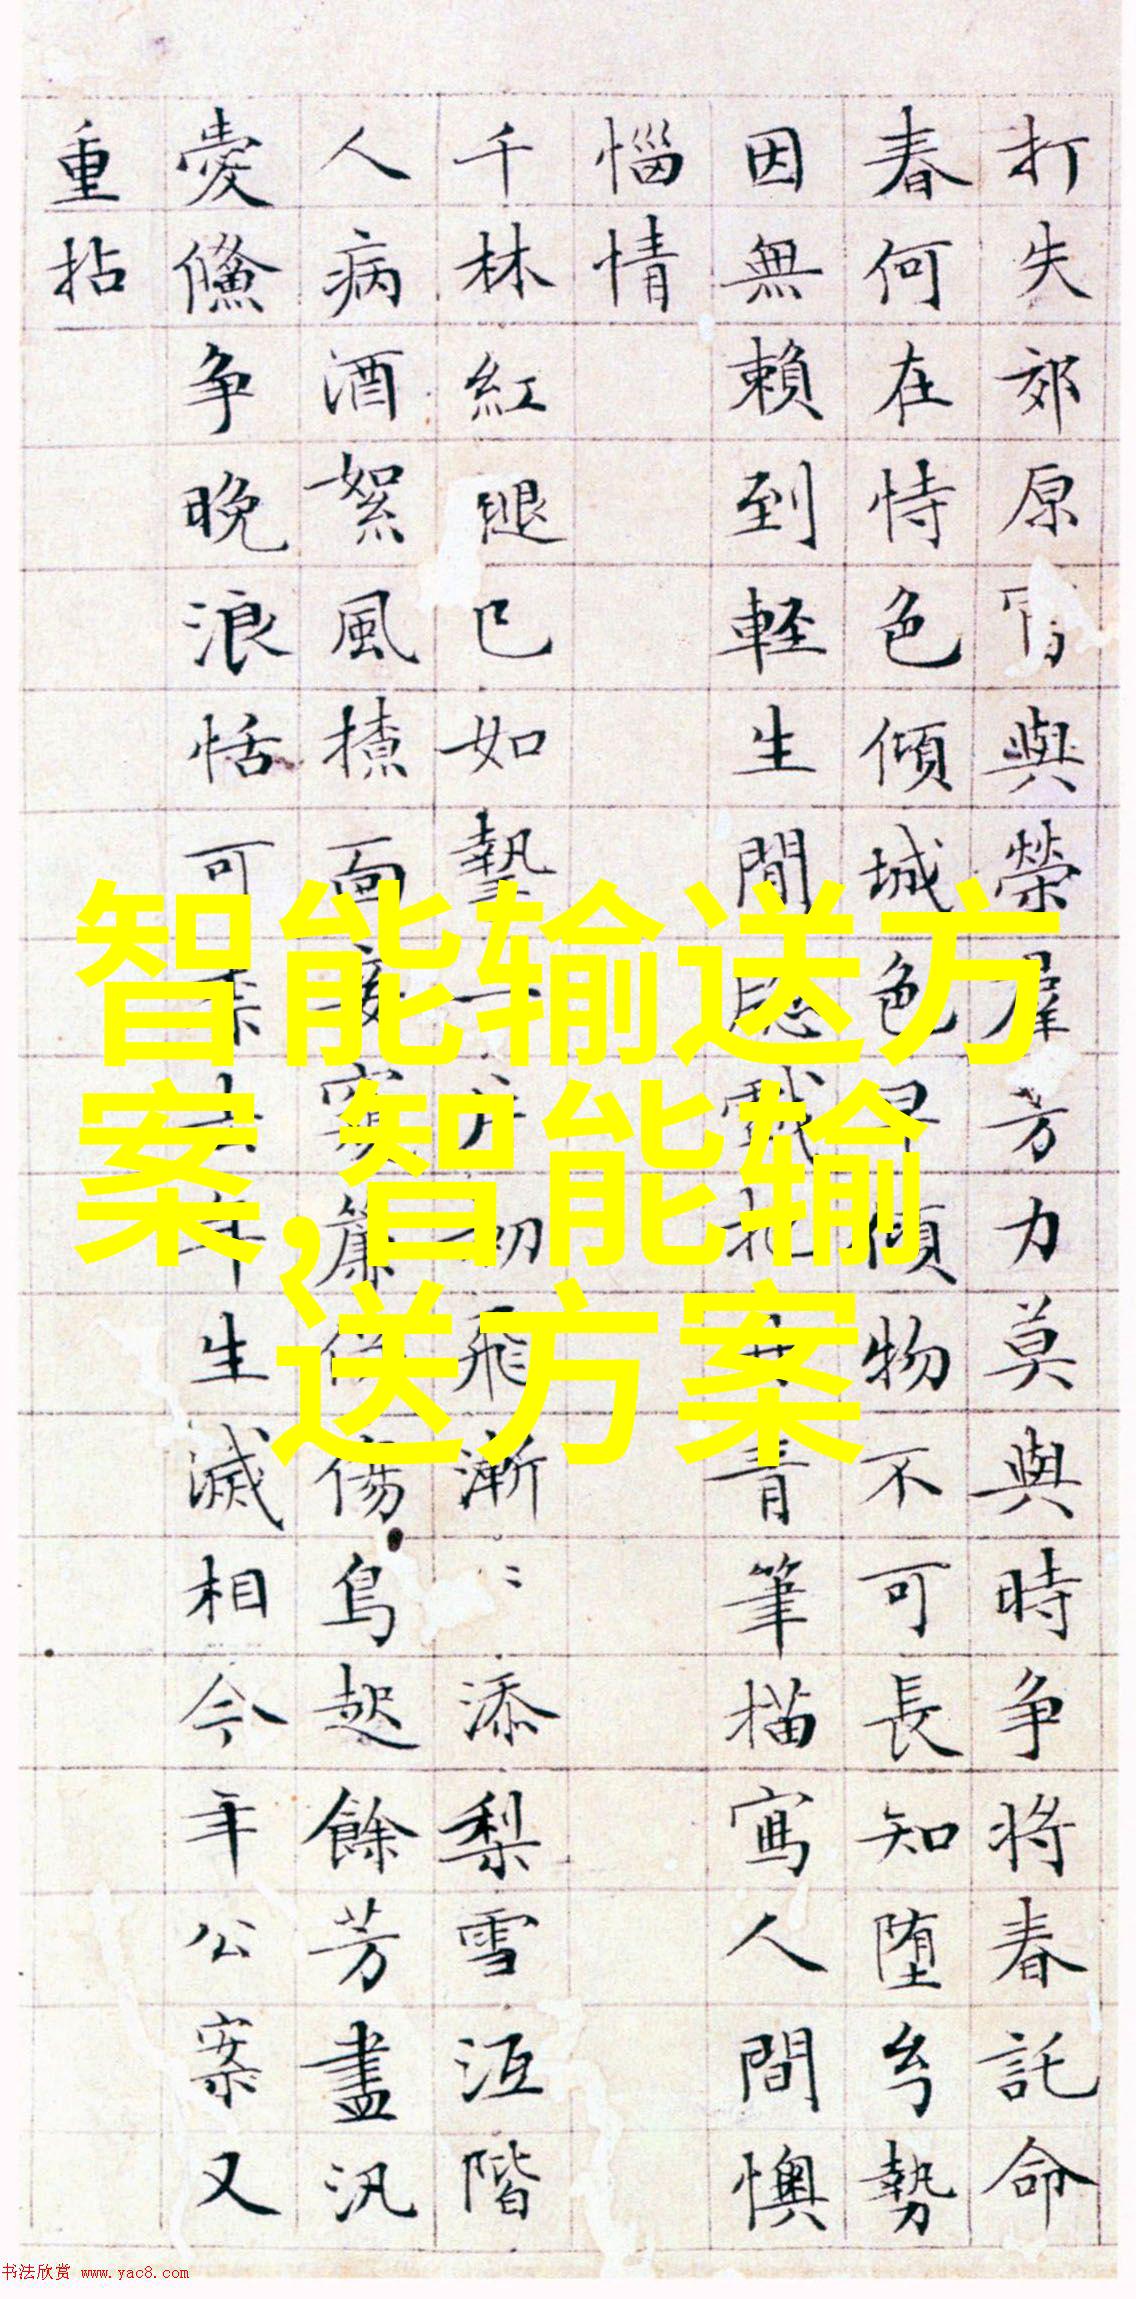 打失郊原與榮羣芳力莫與時争將春託命
春何在恃色傾城色早傾物不可長知墮勢
因無賴到軽生閒青筆描寫人間懊
惱情
千林紅腿已如一片初飛漸〻添梨雪階
人病酒絮風揸面簾傷鳥起餘芳盡汎
愛争晚浪恬可年生滅相今年公案又
重拈
智能输送方
案,智能输
送方案
书法欣赏 www.yac8.com